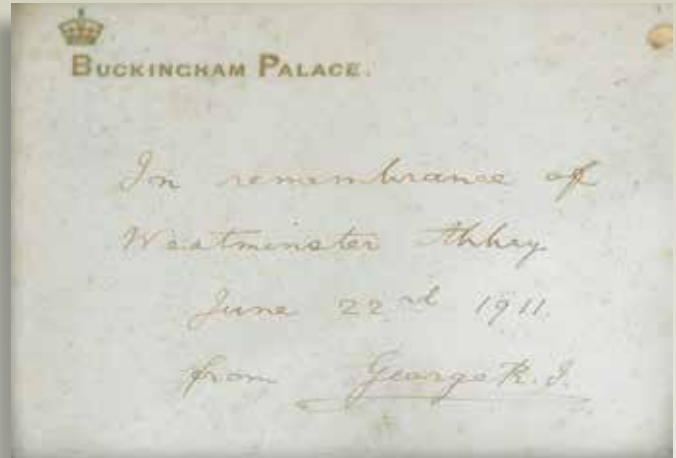 BUCKINGHAM PALACE.
In remembrance of
Westminster Abbey
June 22nd 1911.
from George R.I.